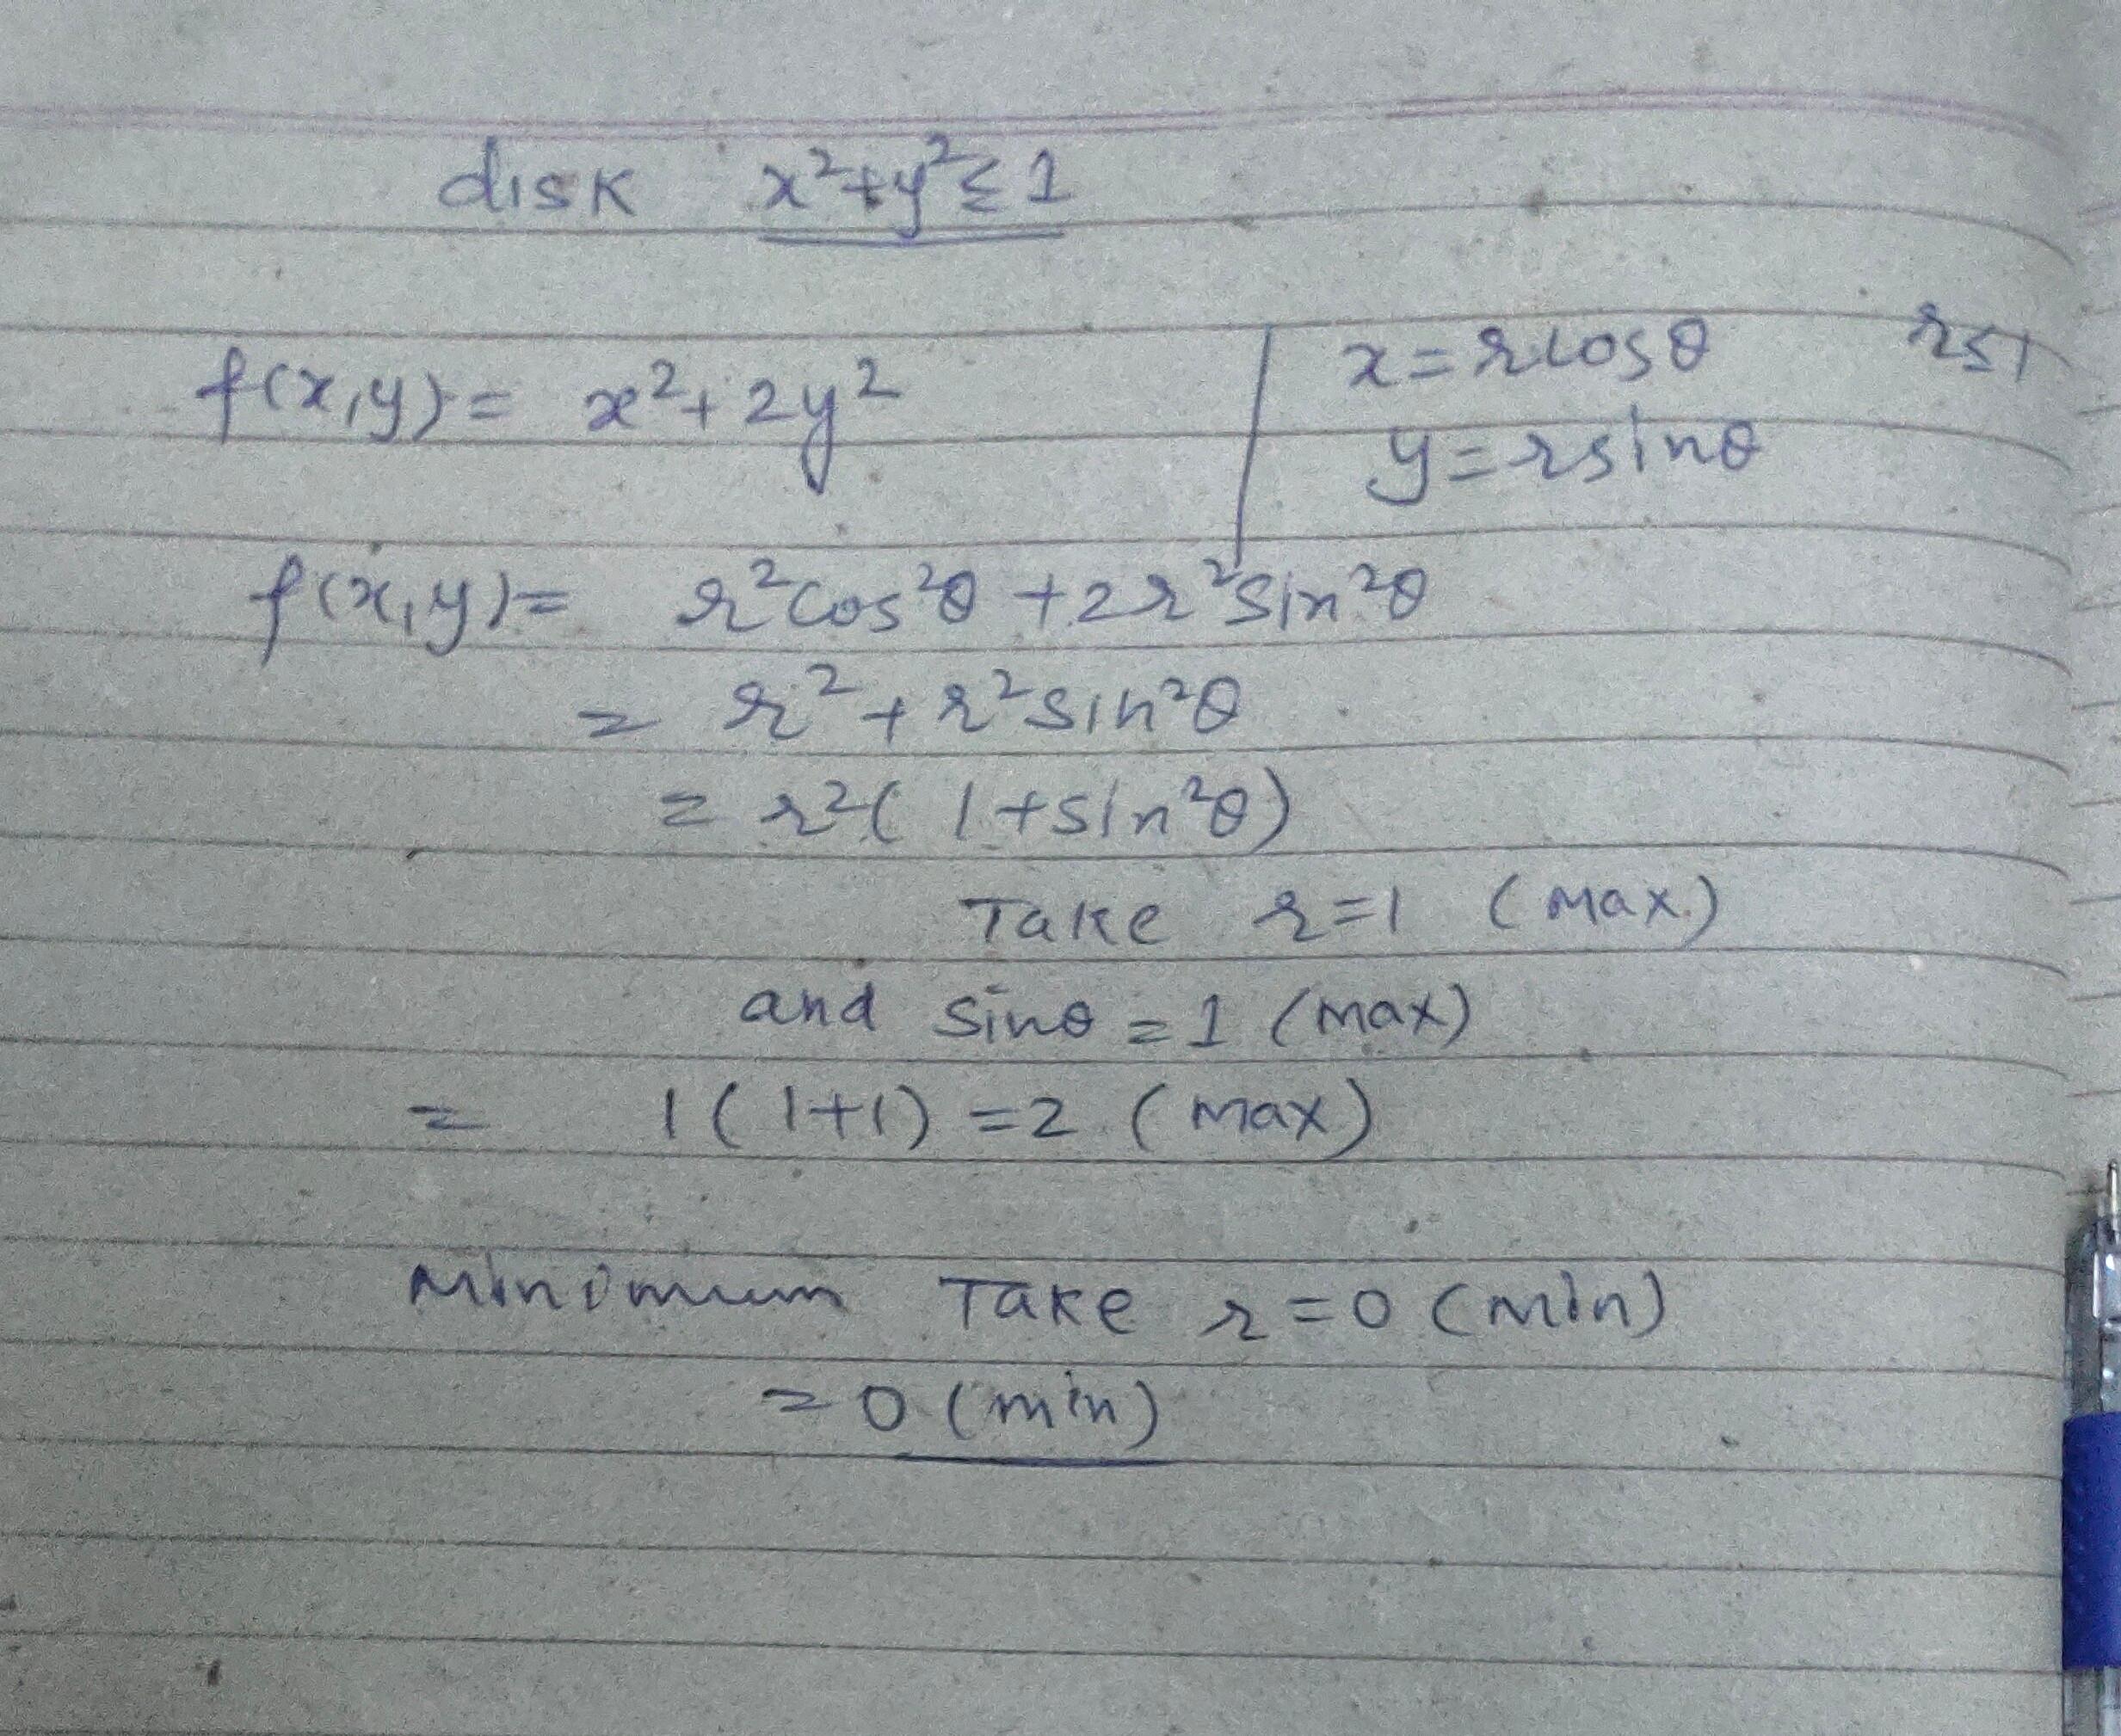 disk x²+y²≤1
f(x,y)= x²+2y²
x=rcosθ r≤1
y=rsinθ
f(x,y)= r²cos²θ+2r²sin²θ
= r²+r²sin²θ
= r²(1+sin²θ)
Take r=1 (max)
and sinθ=1 (max)
= 1(1+1)=2 (max)
Minimum Take r=0 (min)
=0 (min)